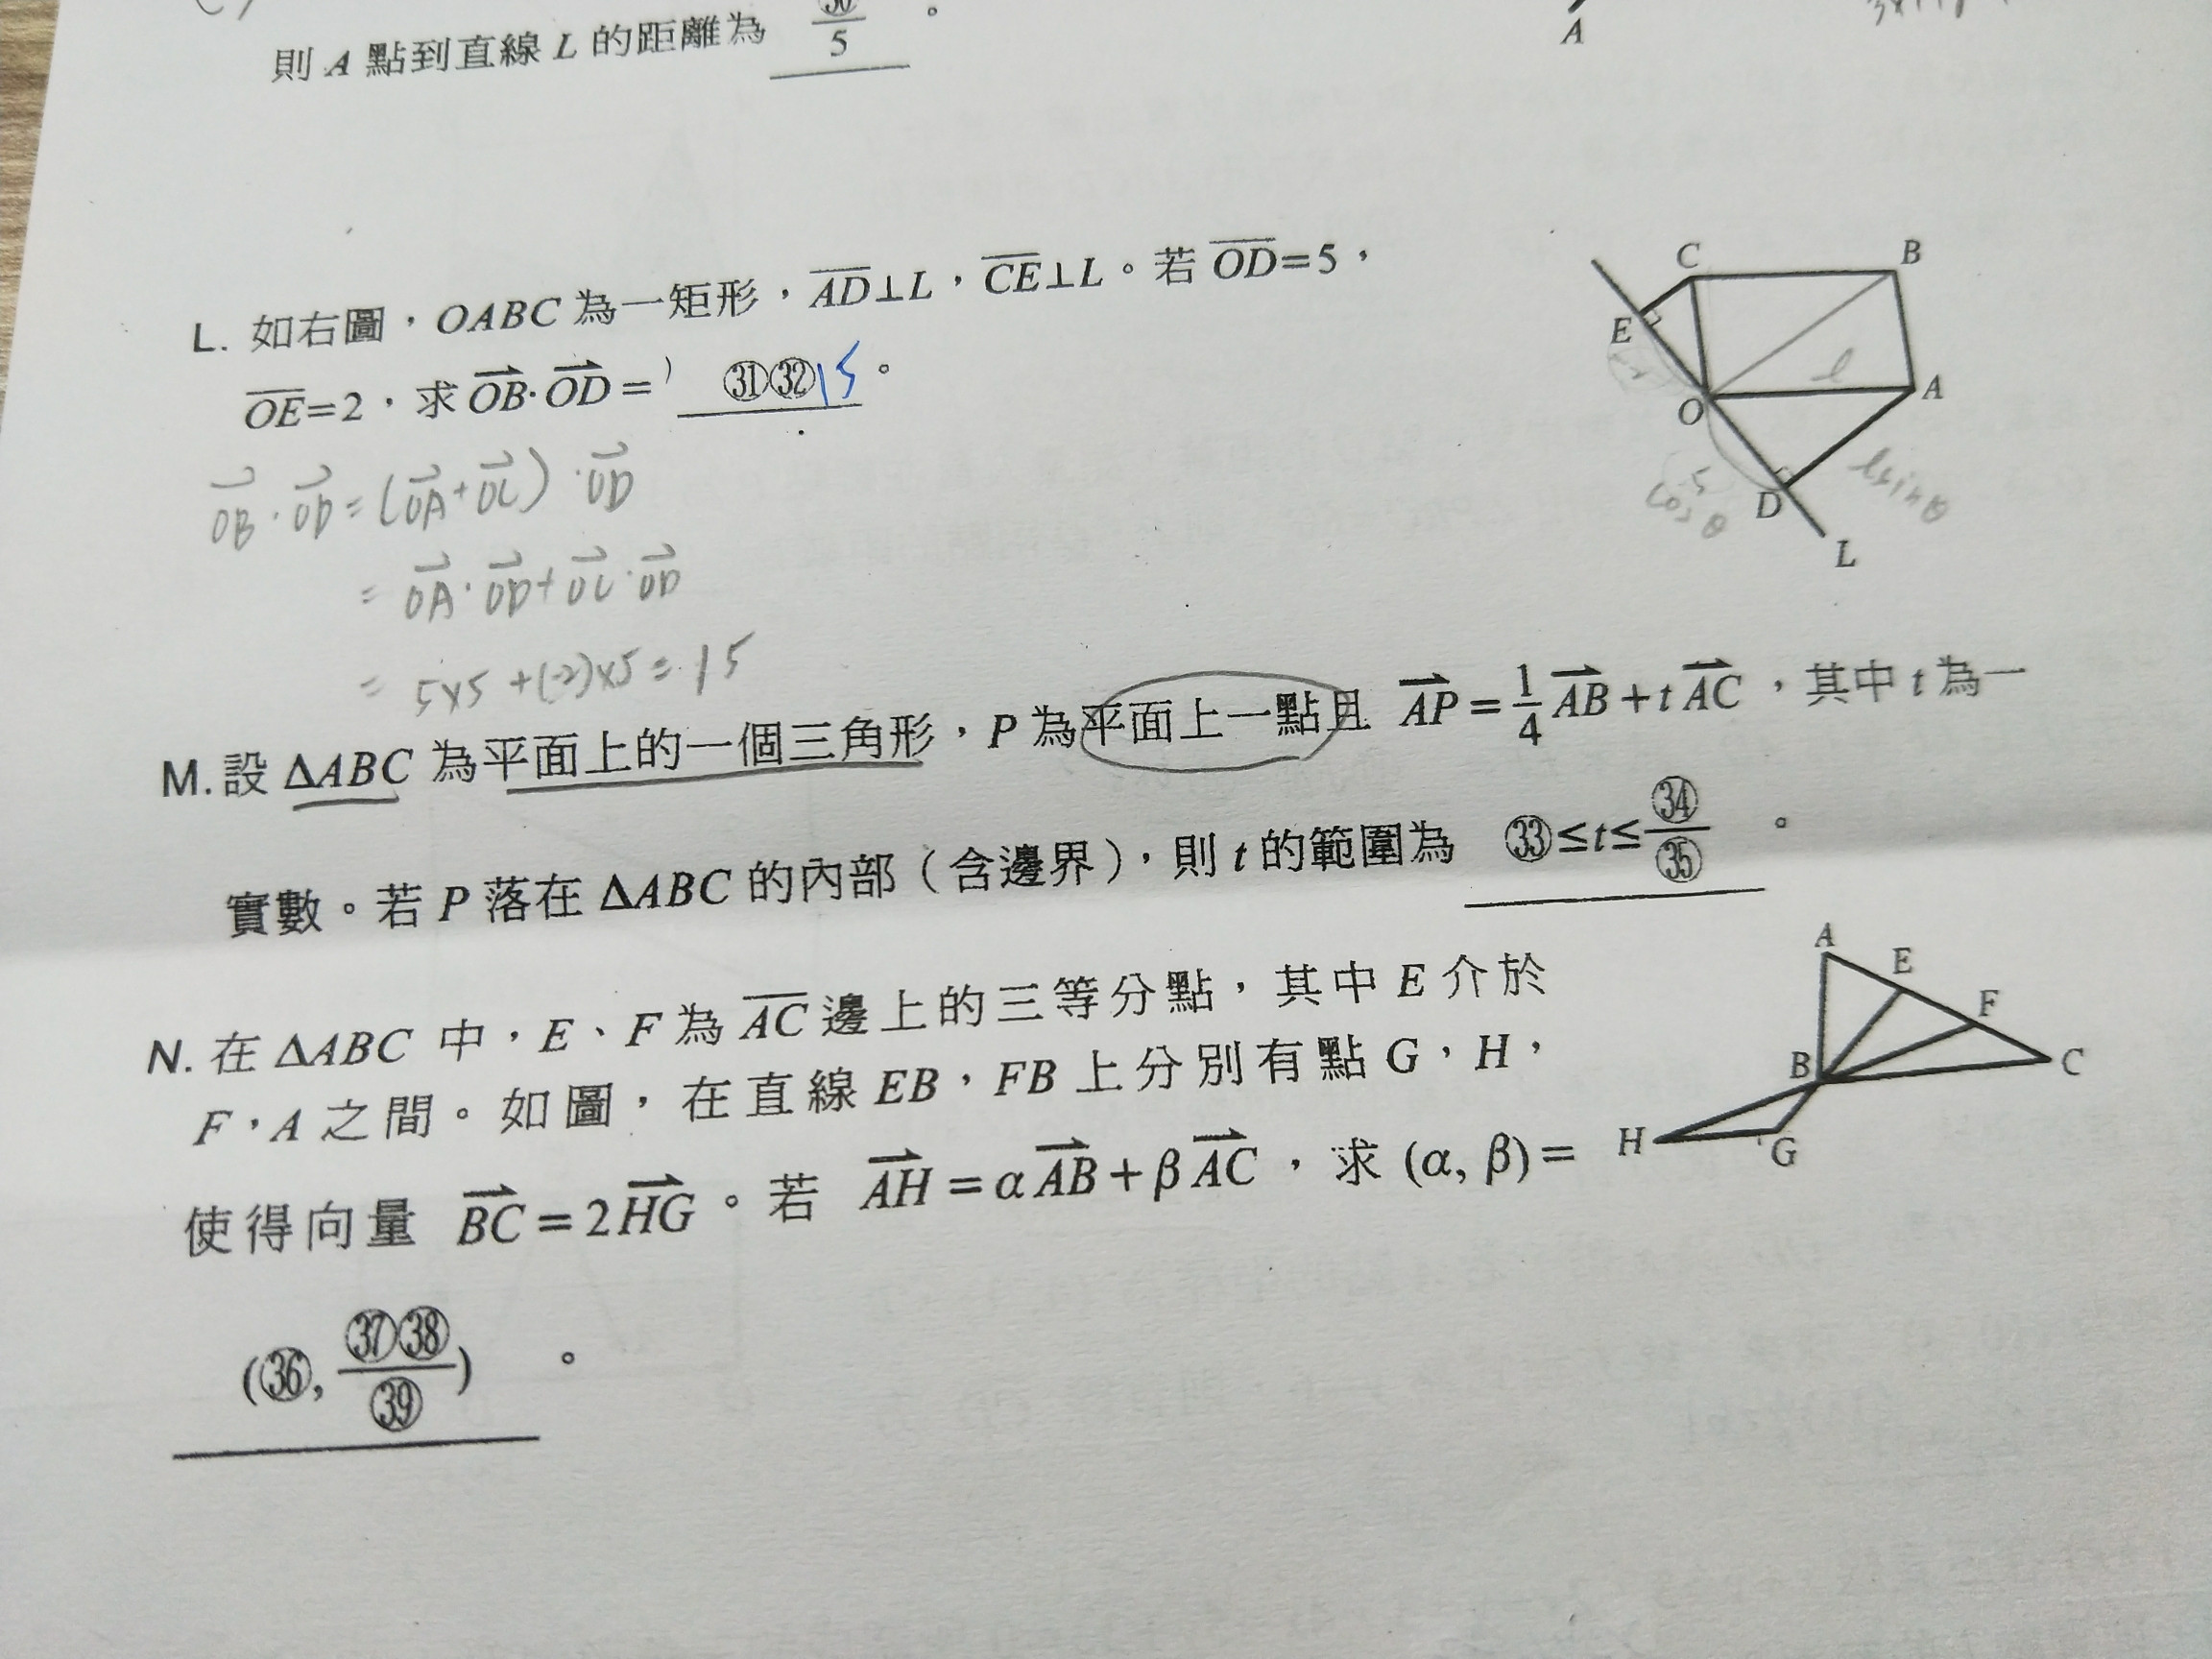 則 A 點到直線 L 的距離為 ㉚/5 。
A
L. 如右圖，OABC 為一矩形，AD⊥L，CE⊥L。若 OD=5，
OE=2，求 OB·OD= ㉛㉜ 15 。
OB·OD=(OA+OC)·OD
= OA·OD+OC·OD
= 5×5+(-2)×5=15
C
B
E
l
O
A
5
cosθ
lsinθ
D
L
M. 設 ΔABC 為平面上的一個三角形，P 為平面上一點且 AP=1/4 AB+t AC，其中 t 為一
實數。若 P 落在 ΔABC 的內部（含邊界），則 t 的範圍為 ㉝≤t≤㉞/㉟ 。
N. 在 ΔABC 中，E、F 為 AC 邊上的三等分點，其中 E 介於
F，A 之間。如圖，在直線 EB，FB 上分別有點 G，H，
使得向量 BC=2HG。若 AH=αAB+βAC，求 (α, β)=
(㊱, ㊲㊳/㊴) 。
A
E
F
B
C
H
G